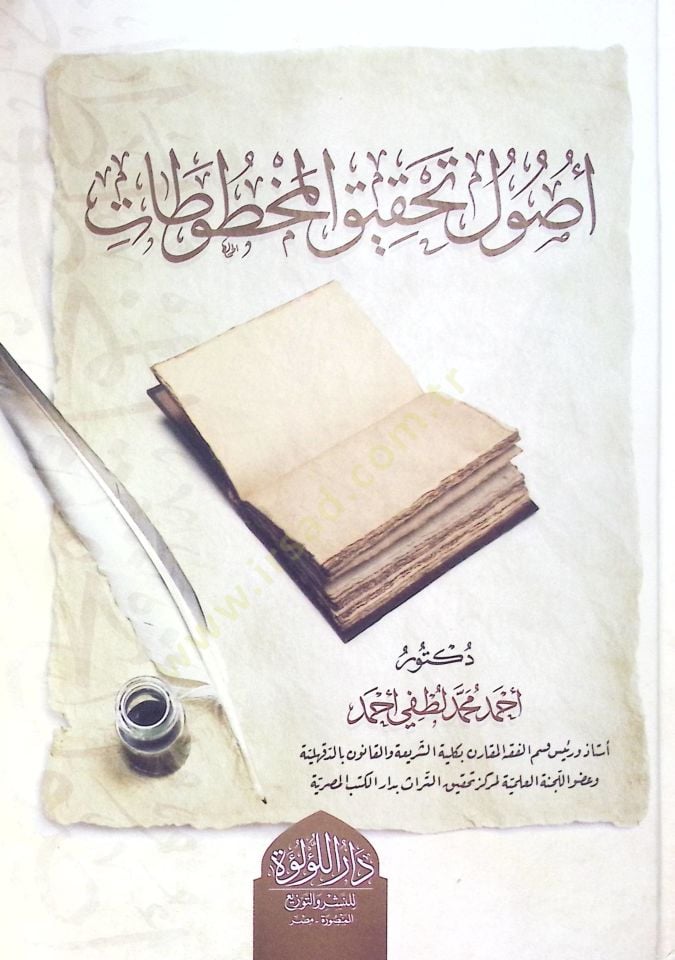 أُصُولُ تَحْقِيقِ المَخْطُوطَاتِ
دُكْتُورُ
أَحْمَد مُحَمَّد لُطْفِي أَحْمَد
أستاذ ورئيس قسم الفقه المقارن بكلية الشريعة والقانون بالدقهلية
وعضو اللجنة العلمية لمركز تحقيق التراث بدار الكتب المصرية
دَارُ اللُّؤْلُؤَةِ
للنشر والتوزيع
المنصورة - مصر
www.irsad.com.tr